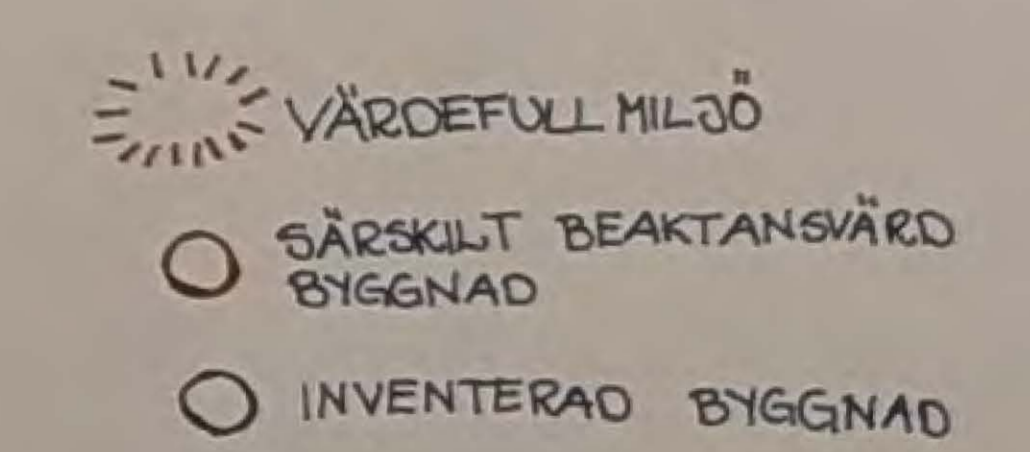 VÄRDEFULL MILJÖ
SÄRSKILT BEAKTANSVÄRD
BYGGNAD
INVENTERAD BYGGNAD